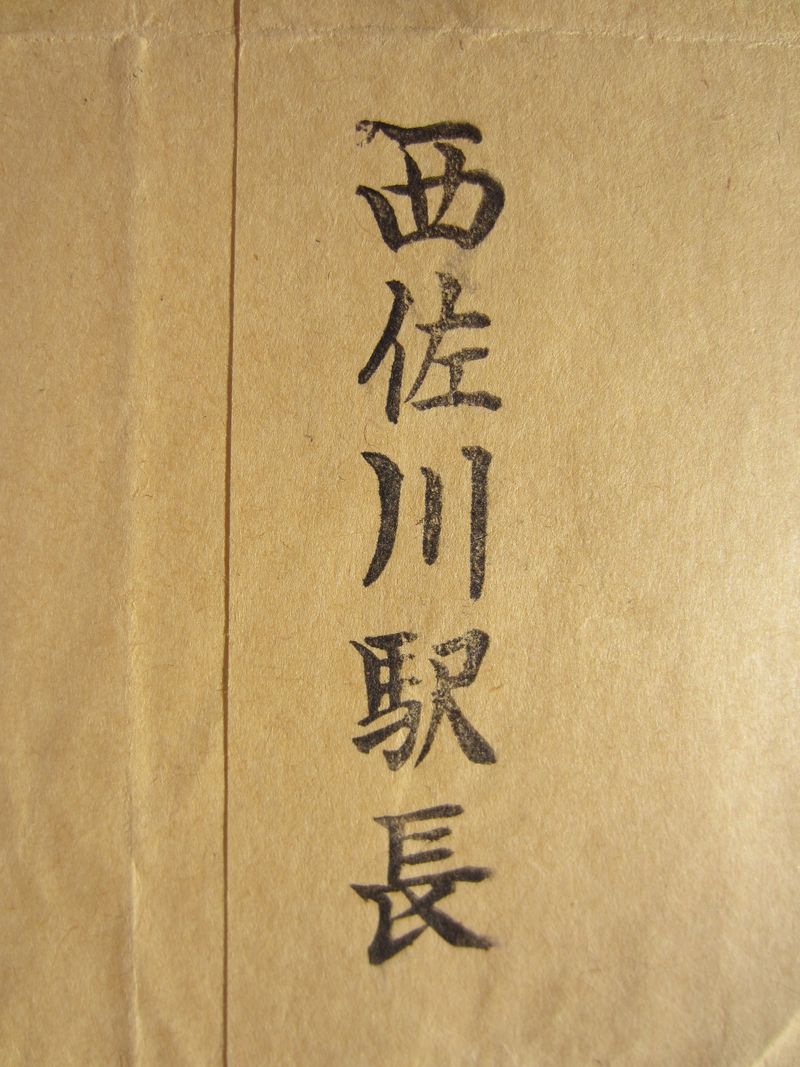 西佐川駅長